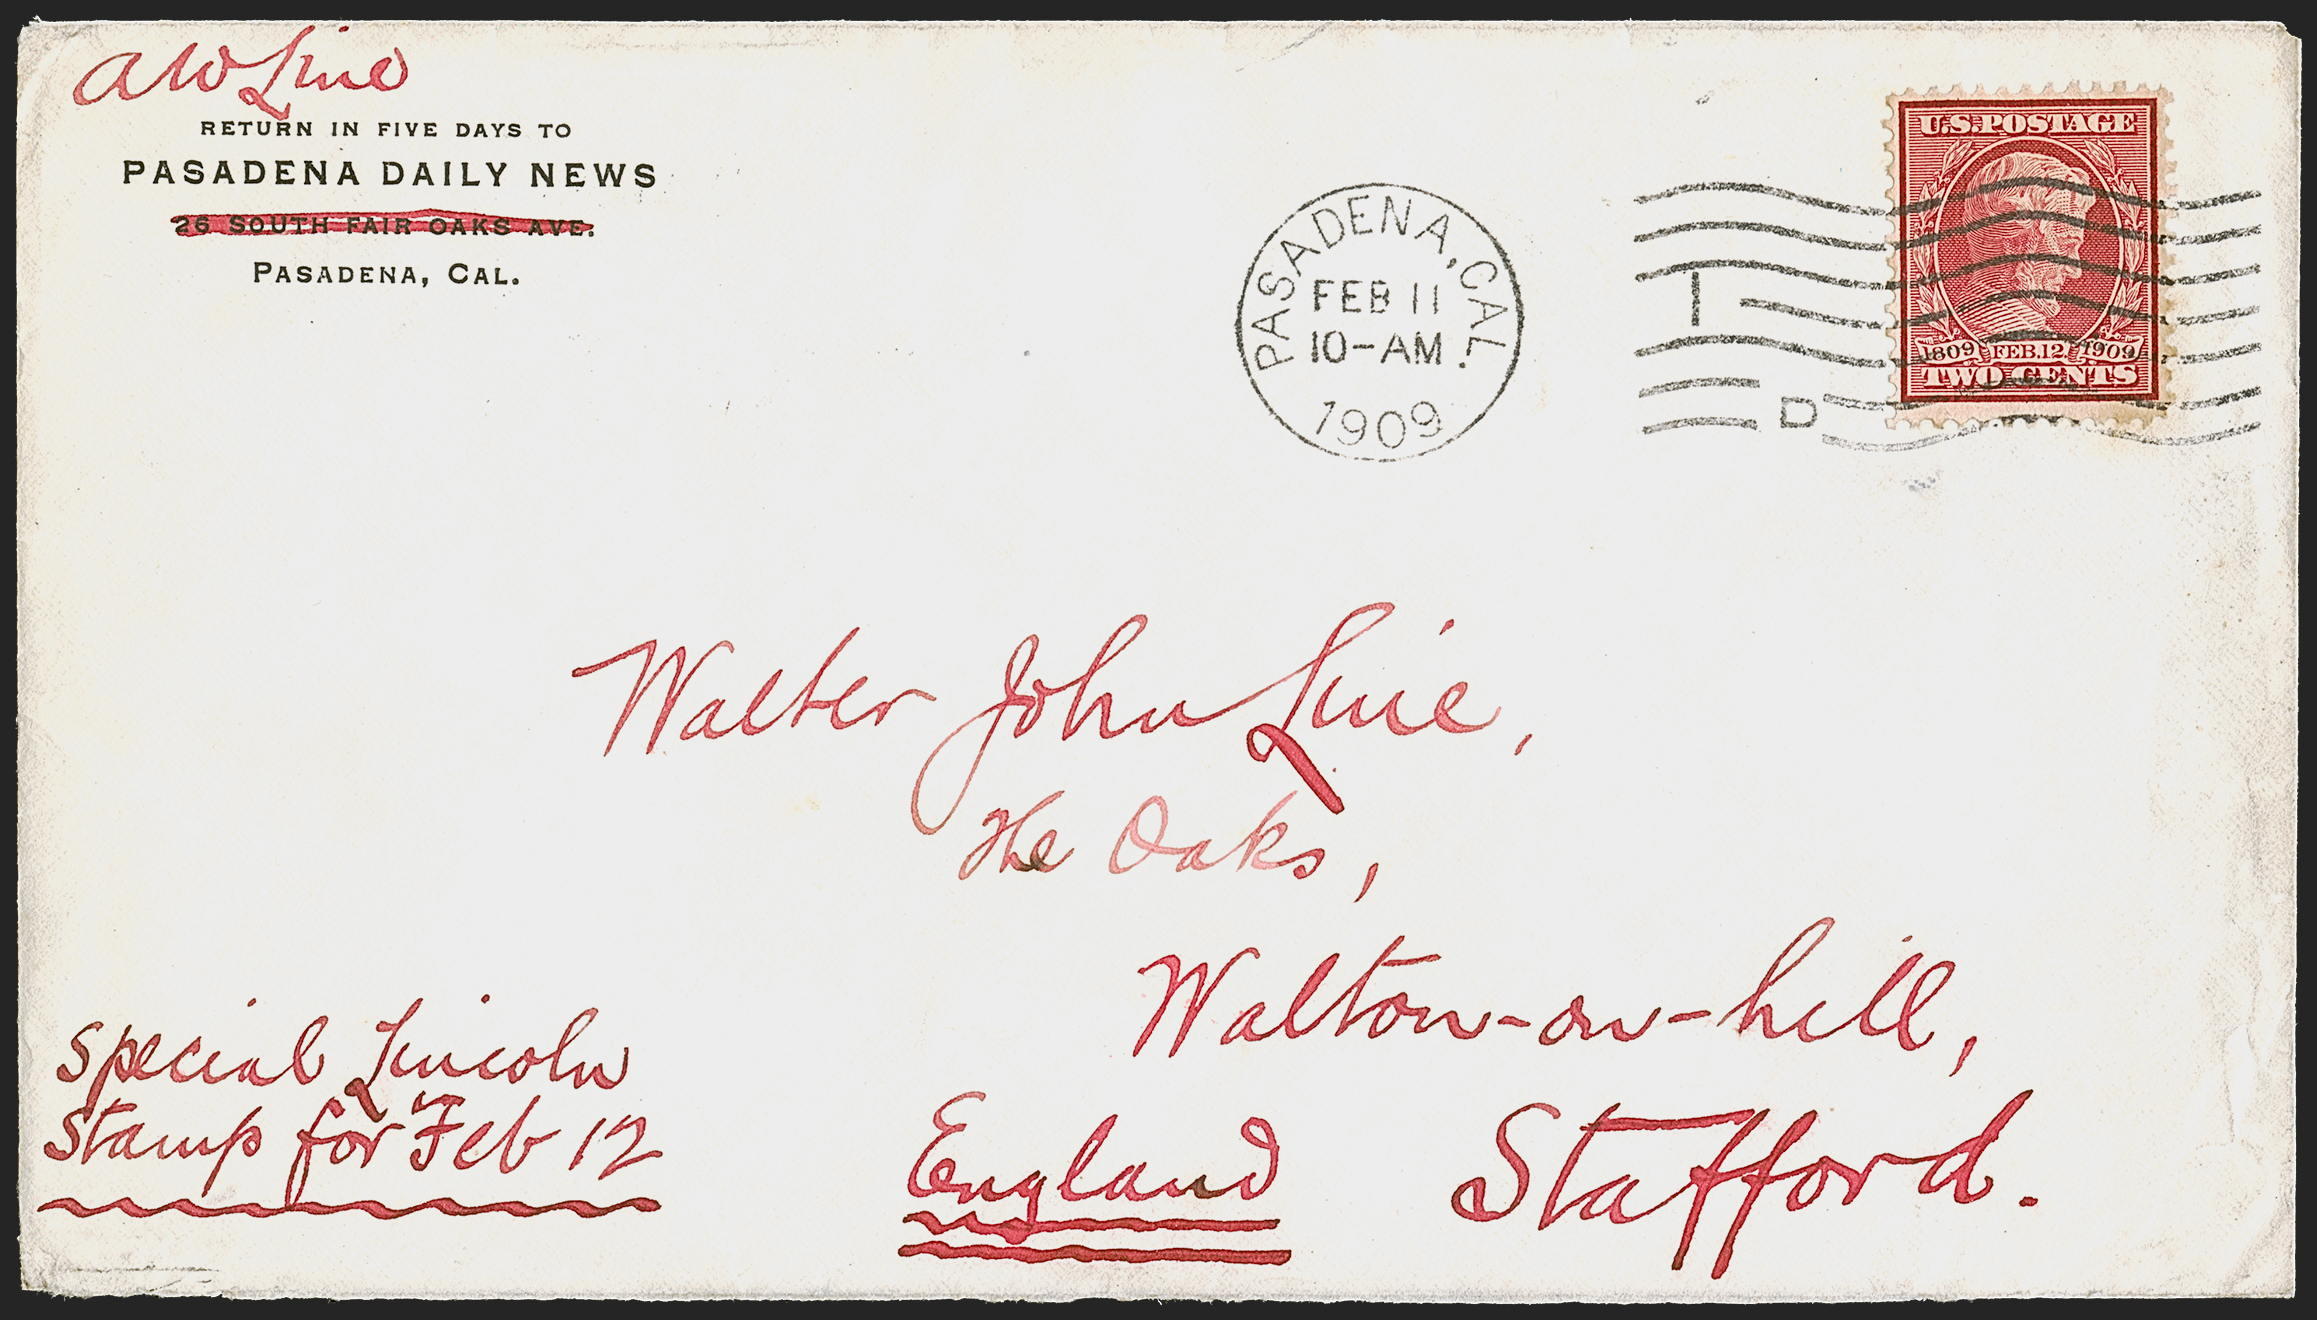 AW Line
RETURN IN FIVE DAYS TO
PASADENA DAILY NEWS
26 SOUTH FAIR OAKS AVE.
PASADENA, CAL.
PASADENA, CAL.
FEB 11
10-AM
1909
I
D
U.S. POSTAGE
1809 FEB. 12 1909
TWO CENTS
Walter John Line,
The Oaks,
Walton-on-hill,
Stafford.
England
Special Lincoln
Stamp for Feb 12